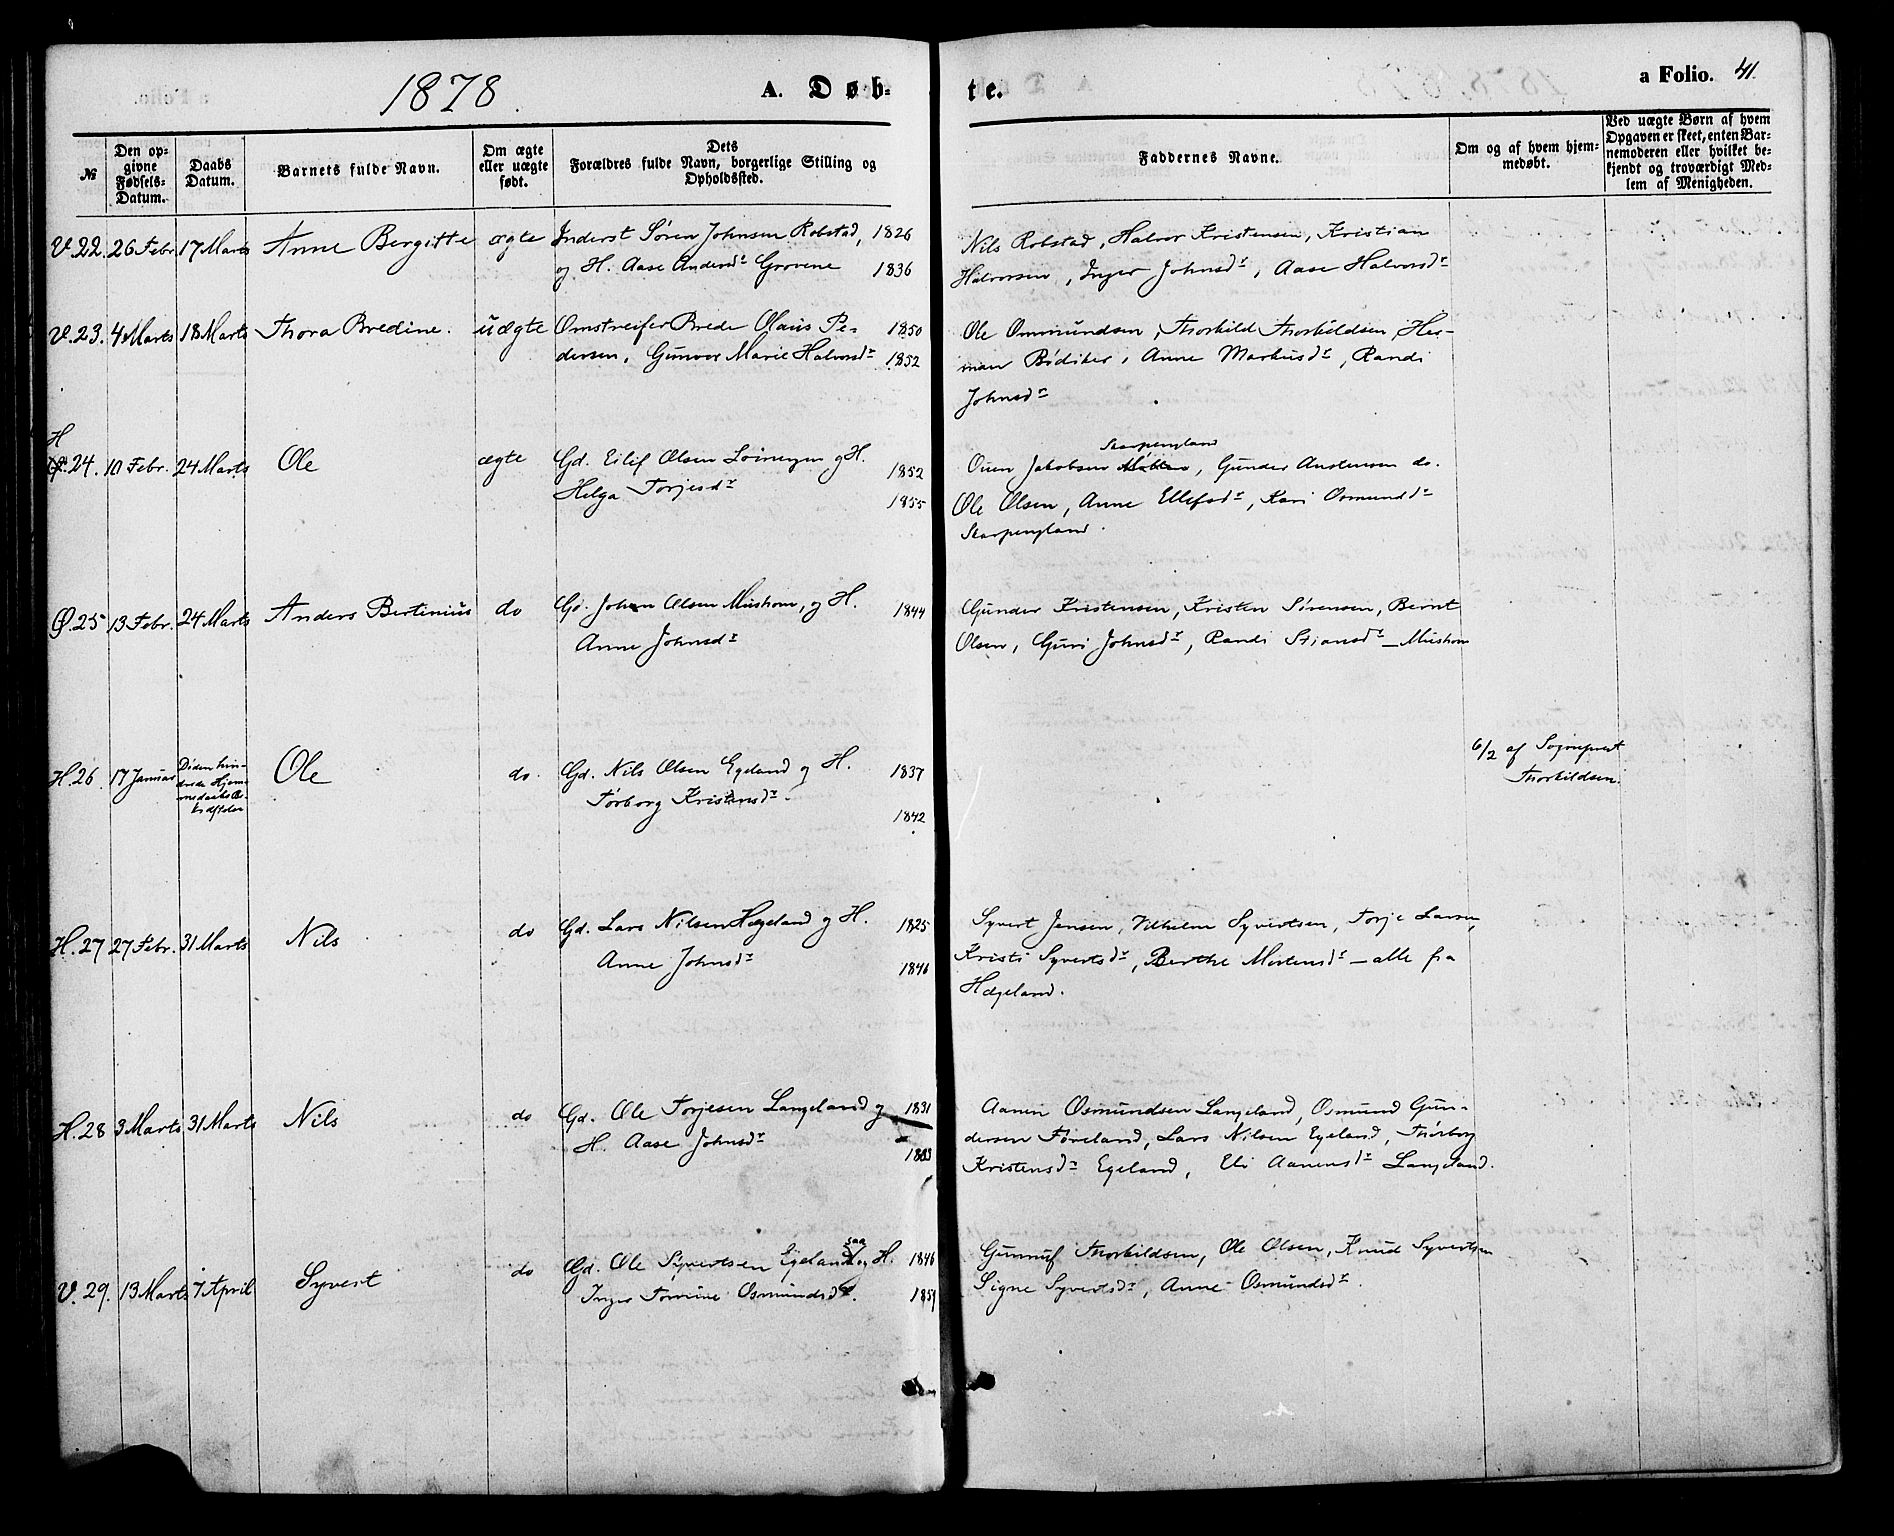 1878.
A. Døb-
te.
a Folio. 41.
№
Den op-
givne
Fødsels-
Datum.
Daabs
Datum.
Barnets fulde Navn.
Om ægte
eller uægte
født.
Dets
Forældres fulde Navn, borgerlige Stilling og
Opholdssted.
Faddernes Navne.
Om og af hvem hjem-
medøbt.
Ved uægte Børn af hvem
Opgaven er skeet, enten Bar-
nemoderen eller hvilket be-
kjendt og troværdigt Med-
lem af Menigheden.
V.22. 26 Febr. 17 Marts Anne Bergitte ægte Inderst Søren Johnsen Robstad, 1826
og H. Aase Andersdr Grovene 1836
Nils Robstad, Halvor Kristensen, Kristian
Halvorsen, Inger Johnsdr, Aase Halvorsdr
V.23. 4 Marts 18 Marts Thora Bredine. uægte Omstreifer Brede Olaus Pe- 1850
dersen, Gunvor Marie Halvorsdr 1852
Ole Ommundsen, Thorkild Thorkildsen, Her-
man Bødiker, Anne Markusdr, Randi
Johnsdr
H
24. 10 Febr. 24 Marts Ole ægte Gd. Eilif Olsen og H. 1852
Helga Torjesdr 1855
Skarpengland
Ouen Jakobsen, Gunder Anstensen do.
Ole Olsen, Anne Ellefsdr, Kari Osmundsdr
Skarpengland.
Ø.25 13 Febr. 24 Marts Anders Bertinius do Gd. Johan Olsen Mushom, og H. 1844
Anne Johnsdr
Gunder Kristensen, Kristen Sørensen, Bernt
Olsen, Guri Johnsdr, Randi Stiansdr — Mushom
H.26. 17 Januar Døden hin-
drede Hjem-
Ole do. Gd. Nils Olsen Egeland og H. 1837
Tørborg Kristensdr. 1842
6/2 af Sognepræst
Thorkildsen.
H.27 27 Febr. 31 Marts Nils do Gd. Lars Nilsen Hægeland og H. 1825
Anne Johnsdr 1846
Syvert Jensen, Vilhelm Syvertsen, Torje Larsen,
Kristi Syvertsdr, Berthe Mortensdr — alle fra
Hægeland.
H.28 3 Marts 31 Marts Nils do Gd. Ole Torjesen Langeland og 1831
H. Aase Johnsdr
Aanen Osmundsen Langeland, Osmund Gun-
dersen Føreland, Lars Nilsen Egeland, Thørborg
Kristensdr Egeland, Eli Aanensdr Langeland.
V.29. 13 Marts 7 April Syvert do Gd. Ole Syvertsen Egelandsaa og H. 1846
Inger Tomine Osmundsdr.
Gunnuf Thorkildsen, Ole Olsen, Knud Syvertsen
Signe Syvertsdr, Anne Osmundsdr.